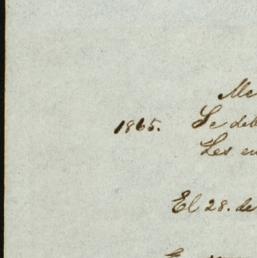 Me
1865. Se deb
Les en
El 28. de